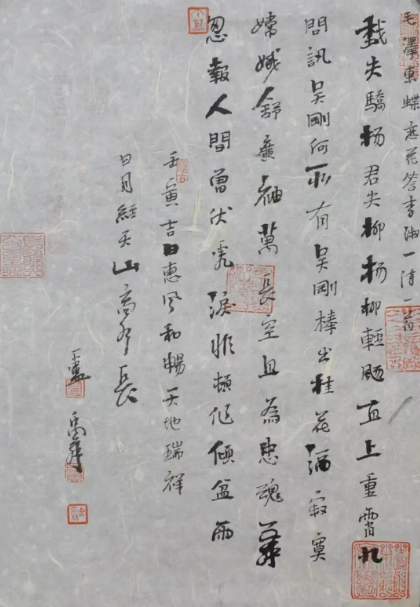 毛澤東蝶戀花答李淑一詩一首
我失驕楊君失柳楊柳輕颺直上重霄九
問訊吳剛何所有吳剛棒出桂花酒寂寞
嫦娥舒廣袖萬長空且為忠魂舞
忽報人間曾伏虎淚飛頓作傾盆雨
壬寅吉日惠风和暢天地瑞祥
日月經天山高水長